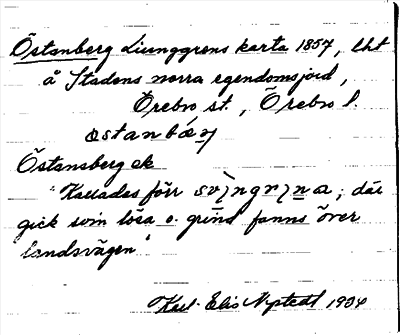 Östanberg Ljunggrens karta 1857, lht
å Stadens norra egendomsjord,
Örebro st., Örebro l.
östanbärj
Östansberg ek
"Kallades förr svìngrina; där
gick svin lösa o. grind fanns över
landsvägen"
Karl-Elis Nystedt 1934